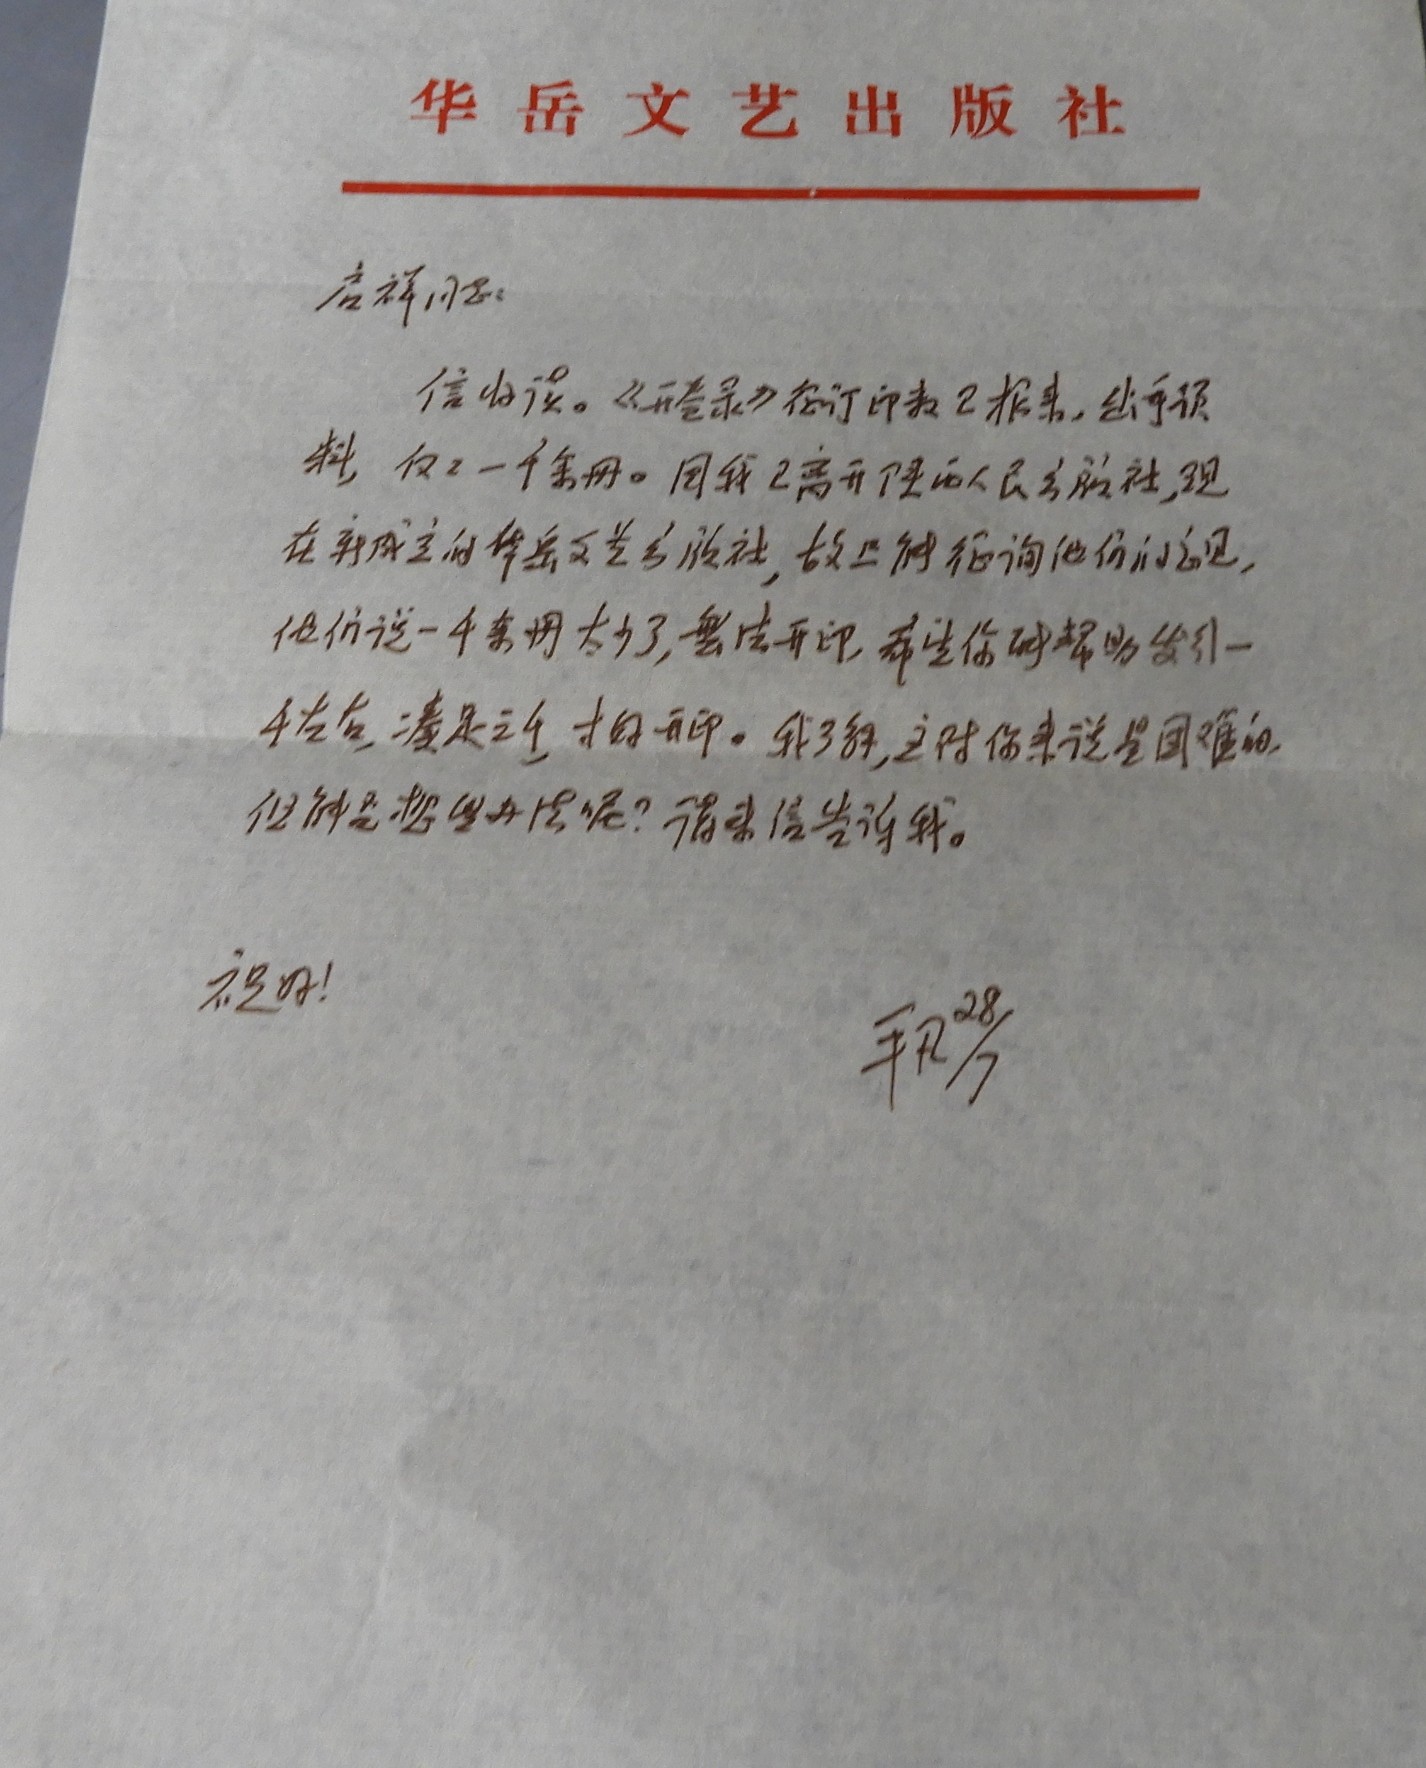 华岳文艺出版社
祥同志：
信收读。《开卷录》征订印数已报来，出乎预
料，仅仅一千余册。因我已离开陕西人民出版社，现
在新成立的华岳文艺出版社，故只能征询他们的意见，
他们说一千余册太少了，无法开印，希望你能帮助发行一
千左右，凑足三千，才好开印。我了解，这对你来说是困难的，
但能否想些办法呢？请来信告诉我。
祝好！
平凡 28/7